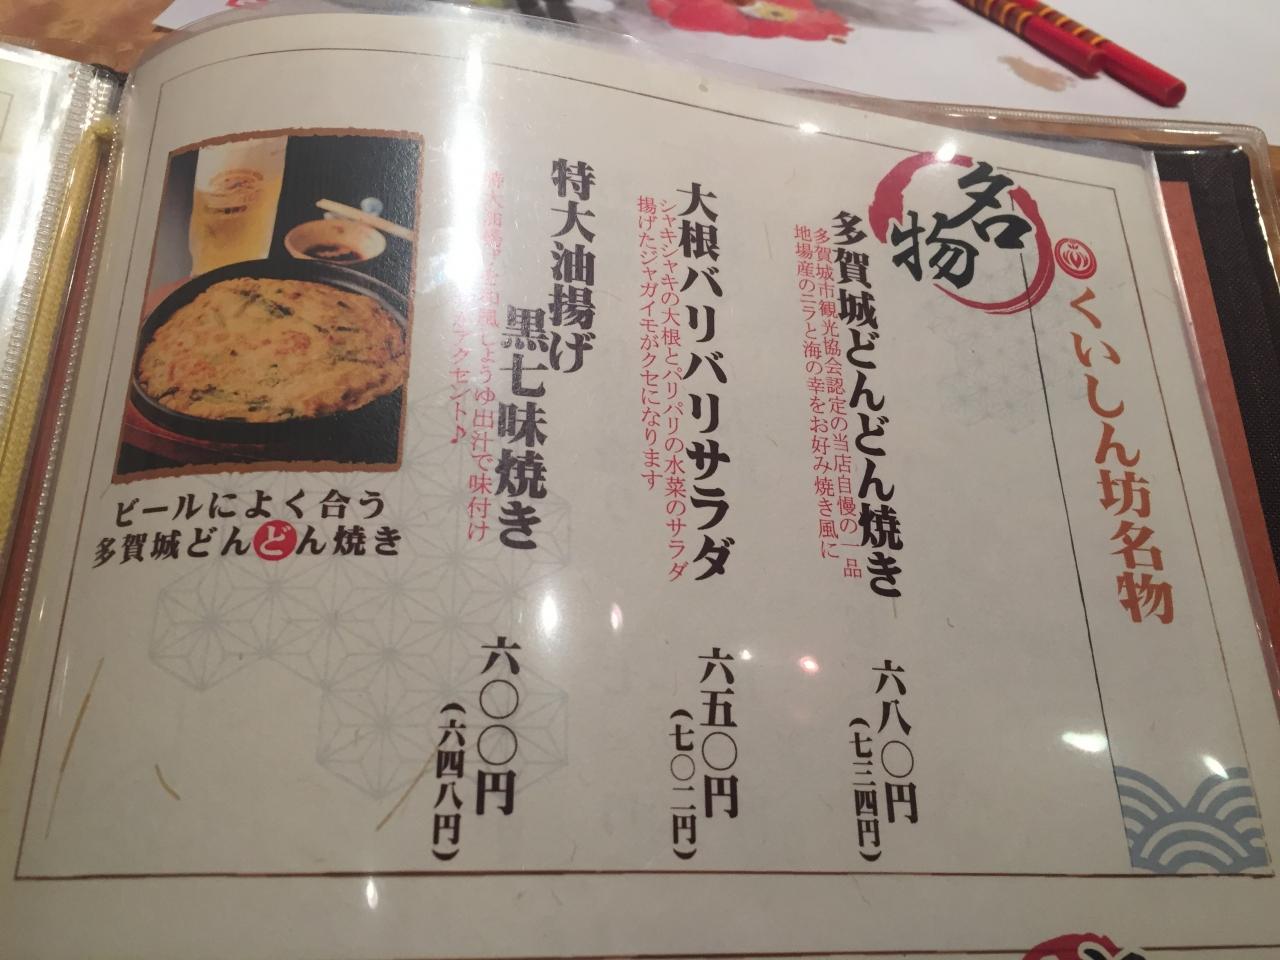 くいしん坊名物
名物
多賀城どんどん焼き
多賀城市観光協会認定の当店自慢の一品
地場産のニラと海の幸をお好み焼き風に
六八〇円
(七三四円)
大根バリバリサラダ
シャキシャキの大根とパリパリの水菜のサラダ
揚げたジャガイモがクセになります
六五〇円
(七〇二円)
特大油揚げ
黒七味焼き
特大油揚げを和風しょうゆ出汁で味付け
アクセント♪
六〇〇円
(六四八円)
ビールによく合う
多賀城どんどん焼き